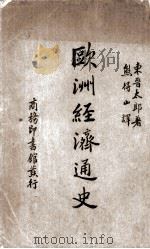 東晉太郎著
熊得山譯
歐洲經濟通史
商務印書館發行